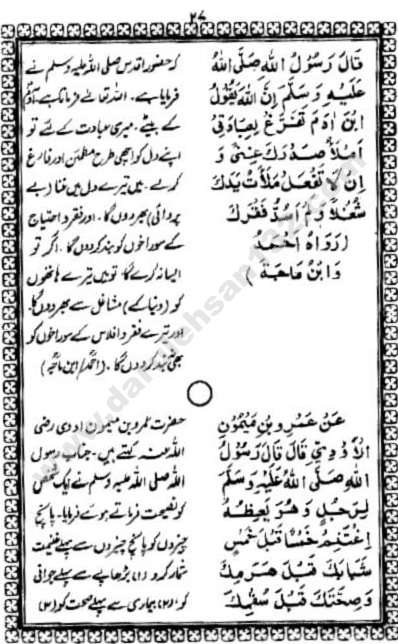 ۲۷
قَالَ رَسُوْلُ اللهِ صَلَّى اللهُ
عَلَيْهِ وَسَلَّمَ اِنَّ اللهَ يَقُوْلُ
ابْنَ اٰدَمَ تَفَرَّغْ لِعِبَادَتِىْ
اَمْلَأْ صَدْرَكَ غِنًى وَ
اِنْ لَا تَفْعَلْ مَلَأْتُ يَدَكَ
شُغْلًا وَلَمْ اَسُدَّ فَقْرَكَ
(رَوَاهُ اَحْمَدُ
وَابْنُ مَاجَةَ)
کہ حضور اقدس صلی اللہ علیہ وسلم نے
فرمایا ہے۔ اللہ تعالےٰ فرماتا ہے آدم
کے بیٹے۔ میری عبادت کے لئے تو
اپنے دل کو اچھی طرح مطمئن اور فارغ
کرلے۔ میں تیرے دل میں غنا (بے
پروائی) بھردوں گا۔ اور فقر و احتیاج
کے سوراخوں کو بند کردوں گا۔ اگر تو
ایسا نہ کرے گا تو میں تیرے ہاتھوں
کو (دنیا کے) مشاغل سے بھر دوں گا۔
اور تیرے فقر و افلاس کے سوراخوں کو
بھی بند کردوں گا۔ (احمد/ ابن ماجہ)
عَنْ عَمْرِو بْنِ مَيْمُوْنِ
الْاَوْدِىِّ قَالَ قَالَ رَسُوْلُ
اللهِ صَلَّى اللهُ عَلَيْهِ وَسَلَّمَ
لِرَجُلٍ وَهُوَ يَعِظُهُ
اِغْتَنِمْ خَمْسًا قَبْلَ خَمْسٍ
شَبَابَكَ قَبْلَ هَرَمِكَ
وَصِحَّتَكَ قَبْلَ سُقْمِكَ
حضرت عمرو بن میمون اودی رضی
اللہ عنہ کہتے ہیں۔ جناب رسول
اللہ صلی اللہ علیہ وسلم نے ایک شخص
کو نصیحت فرماتے ہوئے فرمایا۔ پانچ
چیزوں کو پانچ چیزوں سے پہلے غنیمت
شمار کرو (۱) بڑھاپے سے پہلے جوانی
کو (۲) بیماری سے پہلے صحت کو (۳)